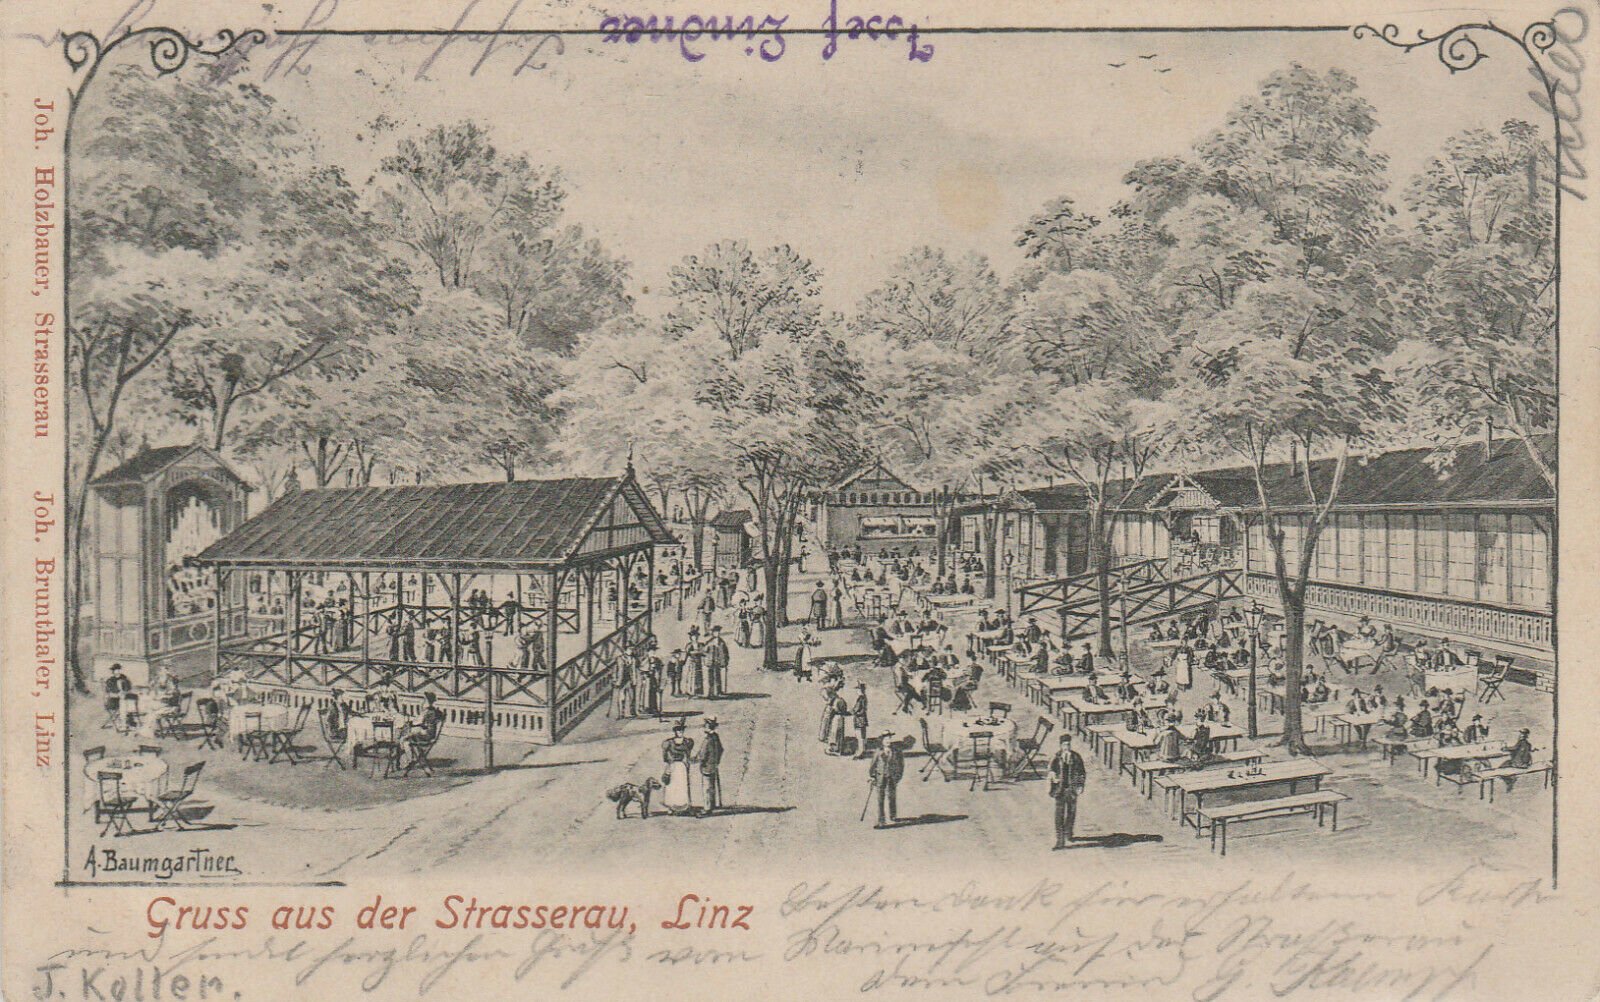 Josef Lindner
Koller
Joh. Holzbauer, Strasserau Joh. Brunthaler, Linz
A. Baumgartner
Gruss aus der Strasserau, Linz
Besten Dank für erhaltene Karte
und sendet herzlichen Gruß vom auf der Straßerau
J. Koller. dein G.